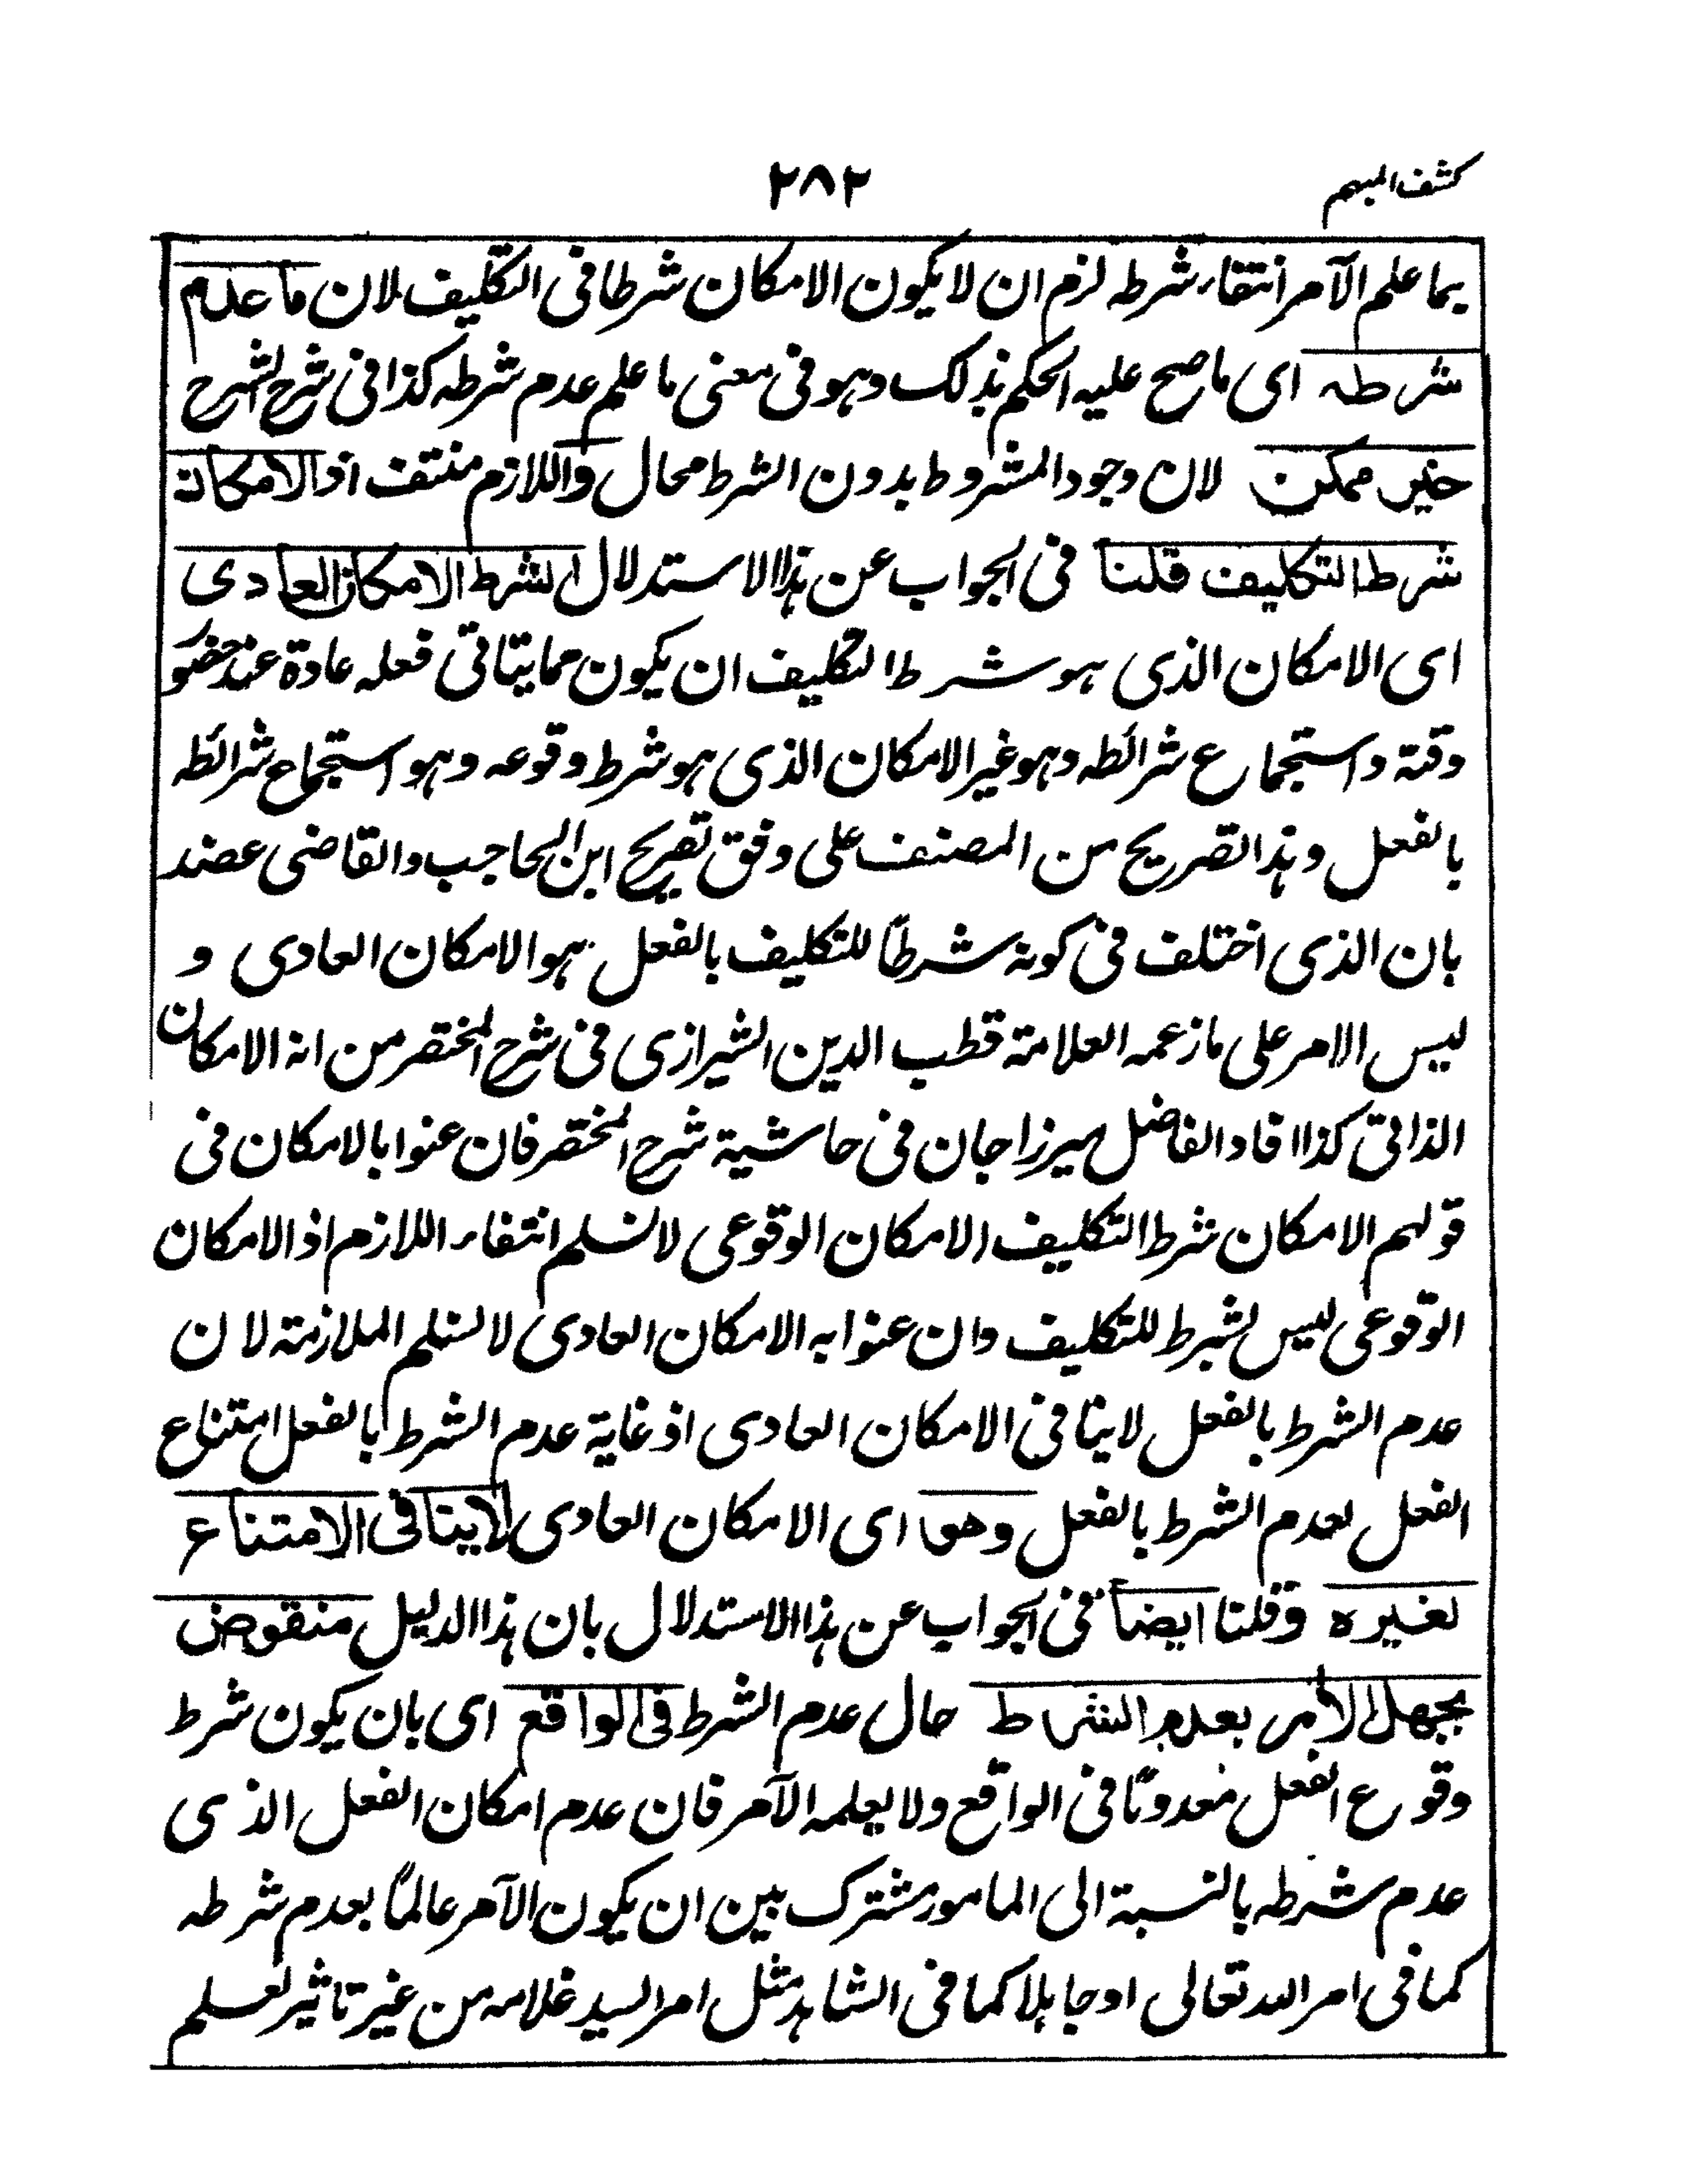 كشف المبهم
٢٨٢
بما علم الآمر انتفاء شرطه لزم ان لا يكون الامكان شرطا فى التكليف لان ما عدم
شرطه اى ما صح عليه الحكم بذلك وهو فى معنى ما علم عدم شرطه كذا فى شرح الشرح
غير ممكن لان وجود المشروط بدون الشرط محال واللازم منتف اذ الامكان
شرط التكليف قلنا فى الجواب عن هذا الاستدلال الشرط الامكان العادى
اى الامكان الذى هو شرط التكليف ان يكون مما يتاتى فعله عادة عند حضور
وقته واستجماع شرائطه وهو غير الامكان الذى هو شرط وقوعه وهو استجماع شرائطه
بالفعل وهذا تصريح من المصنف على وفق تصريح ابن الحاجب والقاضى عضد
بان الذى اختلف فى كونه شرطاً للتكليف بالفعل هو الامكان العادى و
ليس الامر على ما زعمه العلامة قطب الدين الشيرازى فى شرح المختصر من انه الامكان
الذاتى كذا افاد الفاضل ميرزا جان فى حاشية شرح المختصر فان عنوا بالامكان فى
قولهم الامكان شرط التكليف الامكان الوقوعى لا نسلم انتفاء اللازم اذ الامكان
الوقوعى ليس بشرط للتكليف وان عنوا به الامكان العادى لا نسلم الملازمة لان
عدم الشرط بالفعل لا ينافى الامكان العادى اذ غاية عدم الشرط بالفعل امتناع
الفعل لعدم الشرط بالفعل وهو اى الامكان العادى لا ينافى الامتناع
لغيره وقلنا ايضاً فى الجواب عن هذا الاستدلال بان هذا الدليل منقوض
بجهل الآمر بعدم الشرط حال عدم الشرط فى الواقع اى بان يكون شرط
وقوع الفعل معدومًا فى الواقع ولا يعلمه الآمر فان عدم امكان الفعل الذى
عدم شرطه بالنسبة الى المامور مشترك بين ان يكون الآمر عالمًا بعدم شرطه
كما فى امر الله تعالى او جاهلا كما فى الشاهد مثل امر السيد غلامه من غير تاثير لعلم